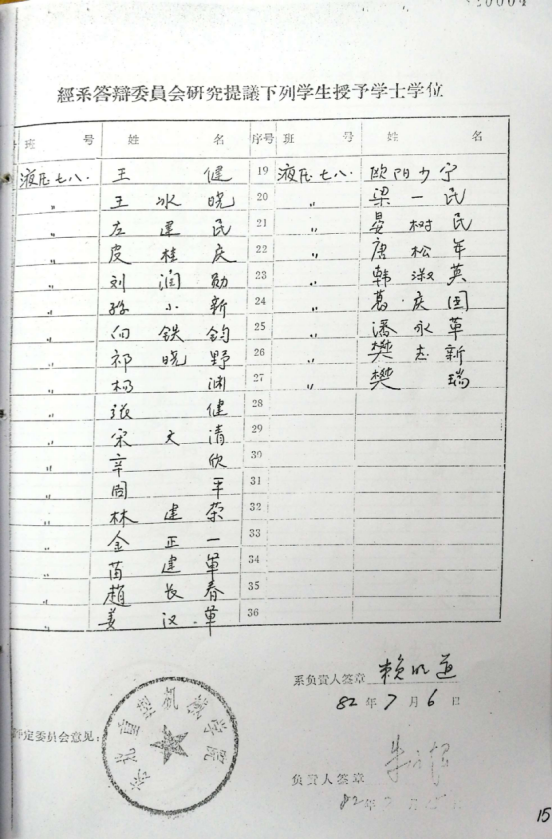 經系答辯委員会研究提議下列学生授予学士学位
班 号 姓 名 序号 班 号 姓 名
液压七八. 王 健 19 液压七八. 欧阳少宁
〃 王冰晓 20 〃 梁一民
〃 左建民 21 〃 晏树民
〃 皮桂庆 22 〃 唐松年
〃 刘润勋 23 〃 韩淑英
〃 孙小新 24 〃 葛庆国
〃 向铁钧 25 〃 潘永革
〃 祁晓野 26 〃 樊志新
〃 杨 渊 27 〃 樊 瑞
〃 张 健 28
〃 宋文清 29
〃 辛 欣 30
〃 周 平 31
〃 林建荣 32
〃 金正一 33
〃 苗建军 34
〃 赵长春 35
〃 姜汉军 36
系负責人签章
82年7月6日
评定委员会意见:
东北重型机械学院
负責人签章
82年 月 日
15